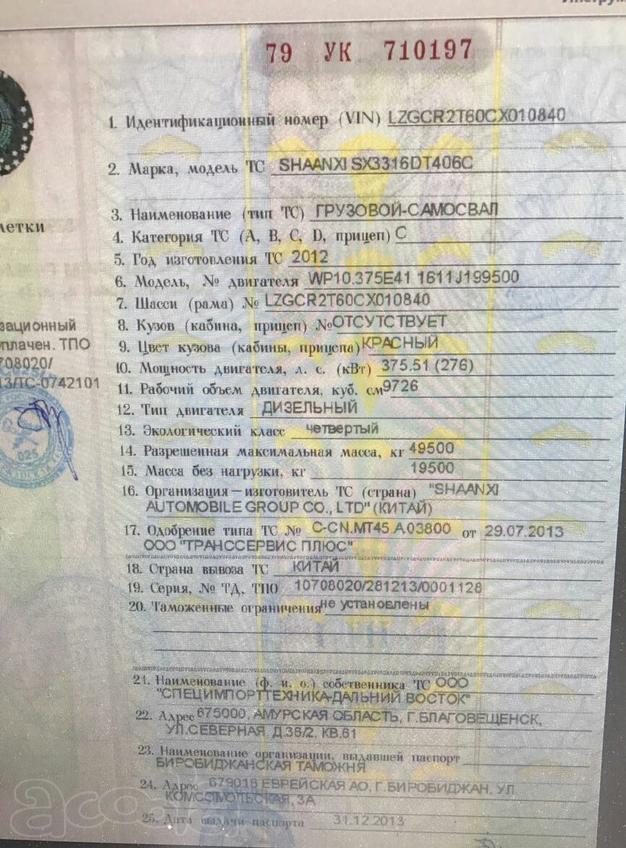 79 УК 710197
1. Идентификационный номер (VIN) LZGCR2T60CX010840
2. Марка, модель ТС SHAANXI SX3316DT406C
3. Наименование (тип ТС) ГРУЗОВОЙ-САМОСВАЛ
летки
4. Категория ТС (А, В, С, D, прицеп) С
5. Год изготовления ТС 2012
6. Модель, № двигателя WP10.375E41 1611J199500
7. Шасси (рама) № LZGCR2T60CX010840
зационный
8. Кузов (кабина, прицеп) № ОТСУТСТВУЕТ
плачен. ТПО
9. Цвет кузова (кабины, прицепа) КРАСНЫЙ
708020/
10. Мощность двигателя, л. с. (кВт) 375.51 (276)
13/ТС-0742101
11. Рабочий объем двигателя, куб. см 9726
12. Тип двигателя ДИЗЕЛЬНЫЙ
13. Экологический класс четвертый
025
14. Разрешенная максимальная масса, кг 49500
15. Масса без нагрузки, кг 19500
16. Организация – изготовитель ТС (страна) "SHAANXI
AUTOMOBILE GROUP CO., LTD" (КИТАЙ)
17. Одобрение типа ТС № C-CN.MT45.A03800 от 29.07.2013
ООО "ТРАНССЕРВИС ПЛЮС"
18. Страна вывоза ТС КИТАЙ
19. Серия, № ТД, ТПО 10708020/281213/0001128
20. Таможенные ограничения не установлены
21. Наименование (ф. и. о.) собственника ТС ООО
"СПЕЦИМПОРТТЕХНИКА-ДАЛЬНИЙ ВОСТОК"
22. Адрес 675000, АМУРСКАЯ ОБЛАСТЬ, Г.БЛАГОВЕЩЕНСК,
УЛ.СЕВЕРНАЯ, Д.36/2, КВ.61
23. Наименование организации, выдавшей паспорт
БИРОБИДЖАНСКАЯ ТАМОЖНЯ
24. Адрес 679016 ЕВРЕЙСКАЯ АО, Г.БИРОБИДЖАН, УЛ.
КОМСОМОЛЬСКАЯ, 3А
25. Дата выдачи паспорта 31.12.2013